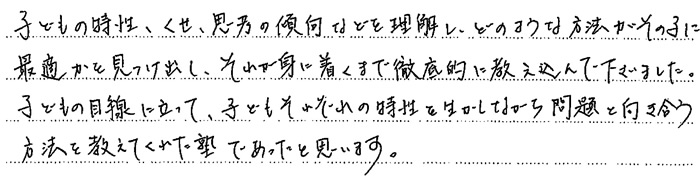 子どもの特性、くせ、思考の傾向などを理解し、どのような方法がその子に
最適かを見つけ出し、それが身に着くまで徹底的に教え込んで下さいました。
子どもの目線に立って、子どもそれぞれの特性を生かしながら問題と向き合う
方法を教えてくれた塾であったと思います。